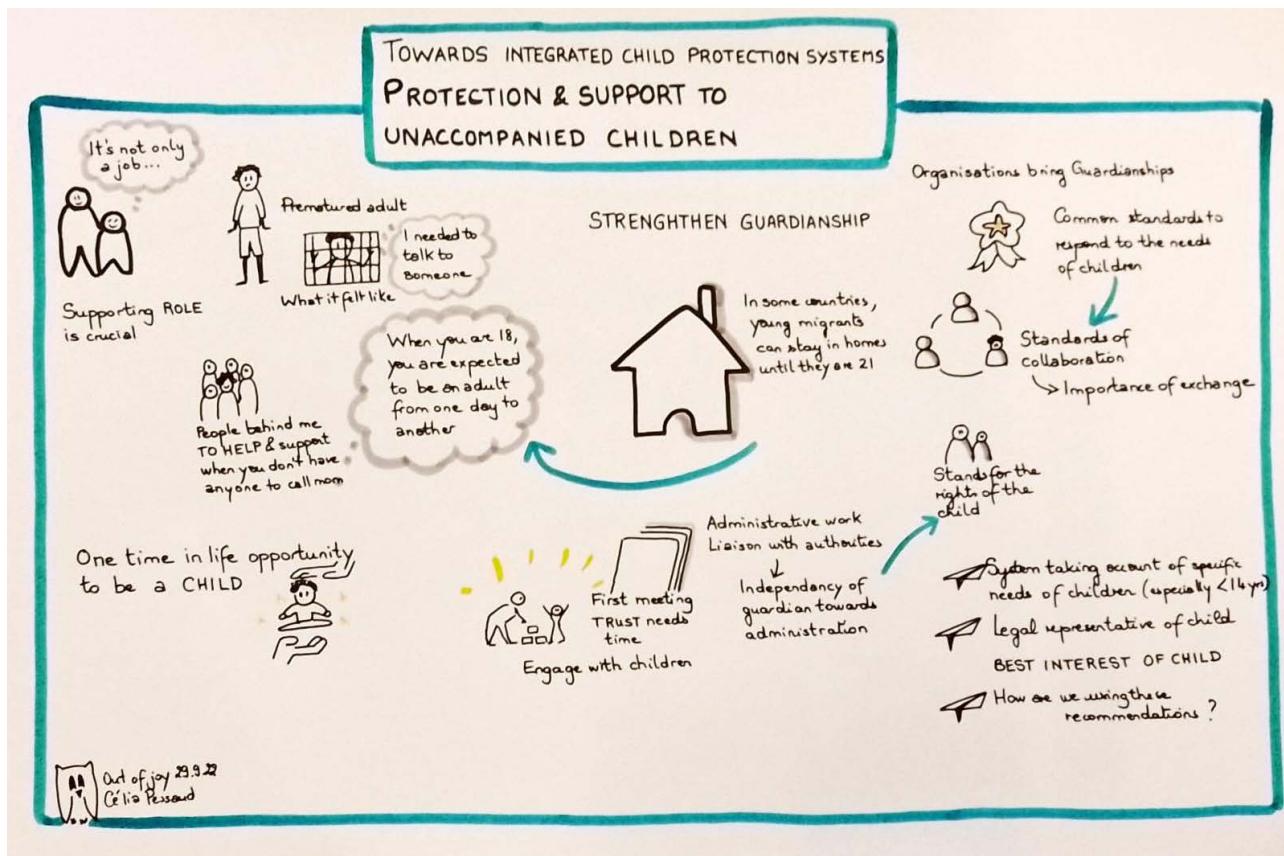 TOWARDS INTEGRATED CHILD PROTECTION SYSTEMS
PROTECTION & SUPPORT TO
UNACCOMPANIED CHILDREN
It's not only
a job...
Supporting ROLE
is crucial
Prematured adult
I needed to
talk to
someone
What it felt like
People behind me
TO HELP & support
when you don't have
anyone to call mom
When you are 18,
you are expected
to be an adult
from one day to
another
One time in life opportunity
to be a CHILD
STRENGHTHEN GUARDIANSHIP
In some countries,
young migrants
can stay in homes
until they are 21
First meeting
TRUST needs
time
Engage with children
Administrative work
Liaison with authorities
Independancy of
guardian towards
administration
Organisations bring Guardianships
Common standards to
respond to the needs
of children
Standards of
collaboration
Importance of exchange
Stands for the
rights of the
child
System taking account of specific
needs of children (especially <14 yrs)
Legal representative of child
BEST INTEREST OF CHILD
How are we using these
recommendations?
Out of joy 29.9.22
Célia